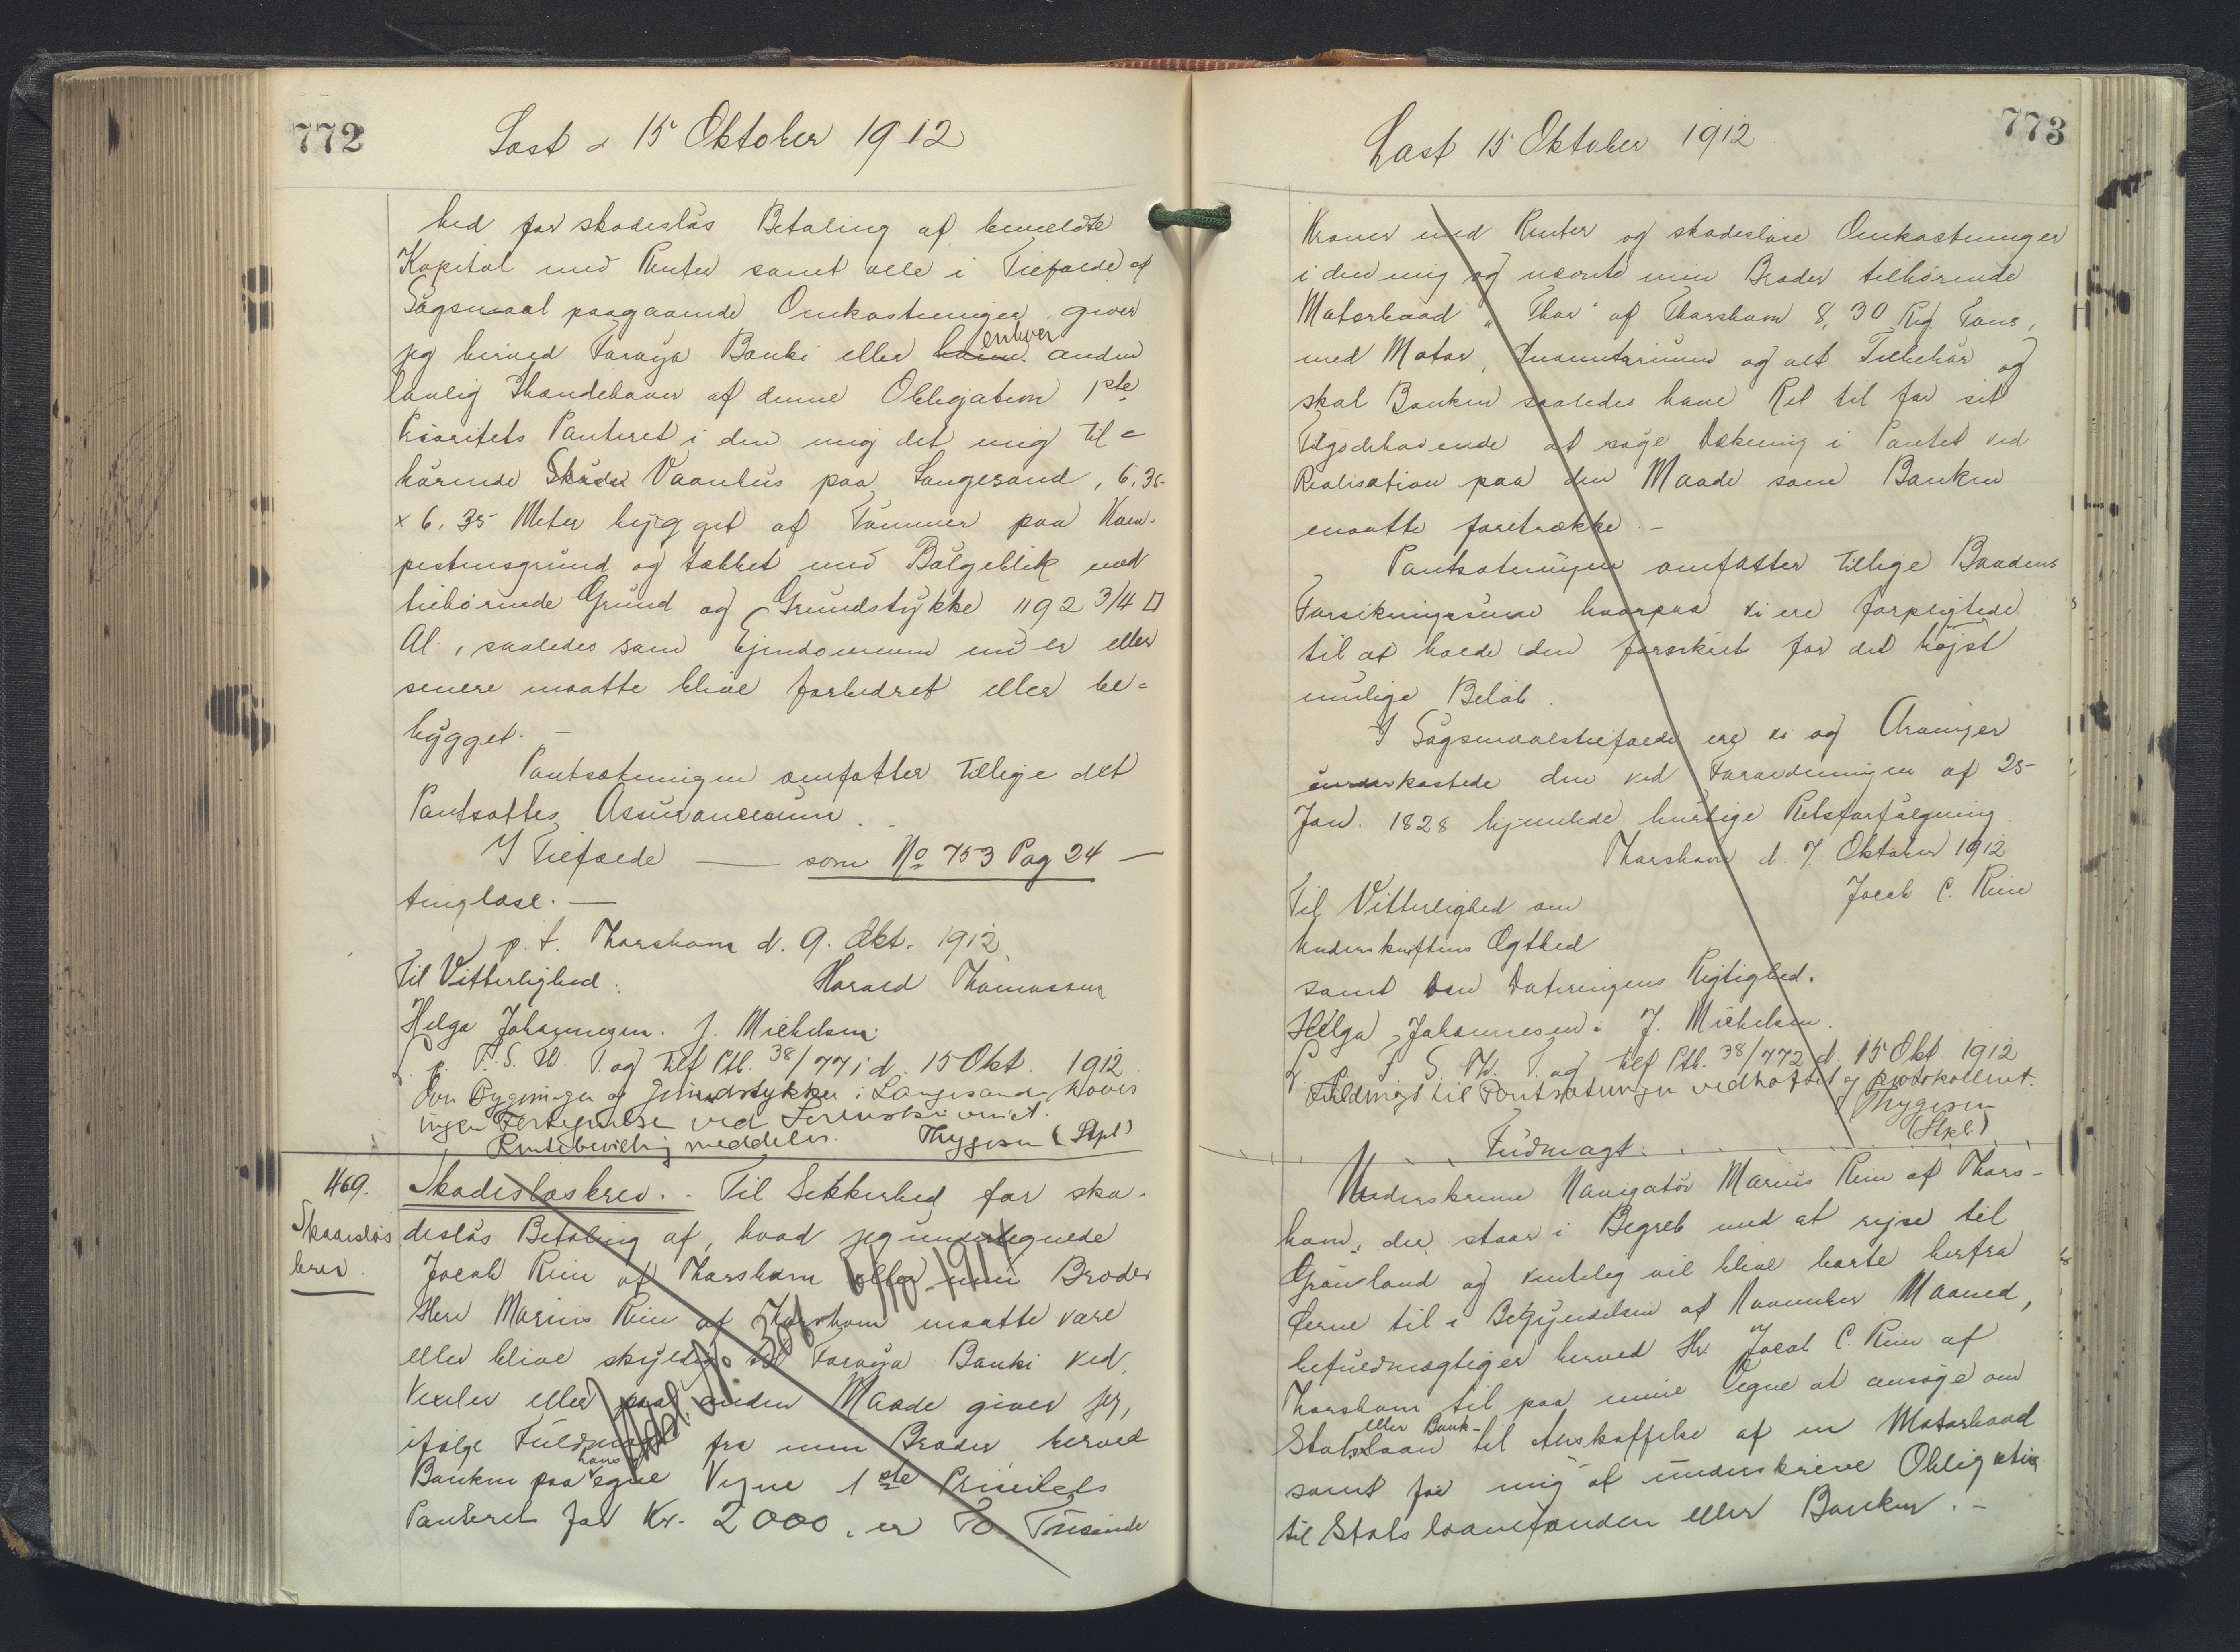 772
Læst d 15 Oktober 1912
hed for skadesløs Betaling af bemeldte
Kapital med Renter samt alle i Tilfælde af
Søgsmaal paagaaende Omkostninger giver
jeg herved Færøya Banki eller enhver anden
lovlig Ihændehaver af denne Obligation 1ste
Prioritets Panteret i den mig det mig til=
hørende Vaanhus paa Langesand, 6,35
x 6,35 Meter bygget af Tømmer paa Kam-
pestensgrund og tækket med Bølgeblik med
tilhørende Grund og Grundstykke 1192 3/4 □
Al., saaledes som Ejendommen nu er eller
senere maatte blive forbedret eller be=
bygget. –
Pantsætningen omfatter tillige det
Pantsattes Assurancesum.
I Tilfælde — som No 753 Pag 24 —
tinglæse. —
p. t. Thorshavn d. 9. Okt. 1912
Til Vitterlighed:
Harald Thomassen
Helga Johannesen. J. Michelsen.
L. p. F. S. Th. T. og Tilf Ptl. 38/771 d. 15 Okt. 1912
Om Bygningen og Grundstykker i Langesand haves
ingen Fortegnelse ved Sorenskriveriet.
Rentebevilling meddeles. Thygesen (Stpl)
469.
Skadesløs
brev.
Skadesløsbrev. - Til Sikkerhed for ska-
desløs Betaling af, hvad jeg undertegnede
Jacob Rein af Thorshavn eller min Broder
Herr Marius Rein af Thorshavn maatte være
eller blive skyldig til Færøya Banki ved
Vexler eller paa anden Maade giver jeg,
ifølge Fuldmagt fra min Broder herved
Banken paa hans og egne Vegne 1ste Prioritets
Panteret for Kr. 2000, er To Tusinde
773
Læst 15 Oktober 1912.
Kroner med Renter og skadesløse Omkostninger
i den mig og nævnte min Broder tilhørende
Motorbaad „Thor" af Thorshavn 8,30 Reg Tons,
med Motor, Inventarium og alt Tilbehør og
skal Banken saaledes have Ret til for sit
Tilgodehavende at søge Dækning i Pantet ved
Realisation paa den Maade som Banken
maatte foretrække. –
Pantsætningen omfatter tillige Baadens
Forsikringssum hvorpaa vi ere forpligtede
til at holde den forsikret for det højst
mulige Beløb.
I Søgsmaalstilfælde ere vi og Arvinger
underkastede den ved Forordningen af 25
Jan. 1828 hjemlede hurtige Retsforfølgning
Thorshavn d. 7. Oktober 1912
Jacob C. Rein
Til Vitterlighed om
Underskriftens Ægthed
samt Dateringens Rigtighed.
Helga Johannesen: J. Michelsen.
L. p. F. S. Th. T. og Tilf Ptl. 38/772 d. 15 Okt. 1912
Fuldmagt til Pantsætningen vedhæftet og protokolleret.
Thygesen
(Stpl.)
Fuldmagt.
Underskrevne Navigatør Marius Rein af Thors-
havn, der staar i Begreb med at rejse til
Grønland og ventelig vil blive borte herfra
Øerne til i Begyndelsen af November Maaned,
befuldmægtiger herved Hr Jacob C. Rein af
Thorshavn til paa mine Vegne at ansøge om
Stats eller Bank-laan til Anskaffelse af en Motorbaad
samt for mig at underskrive Obligation
til Statslaanefonden eller Banken. –